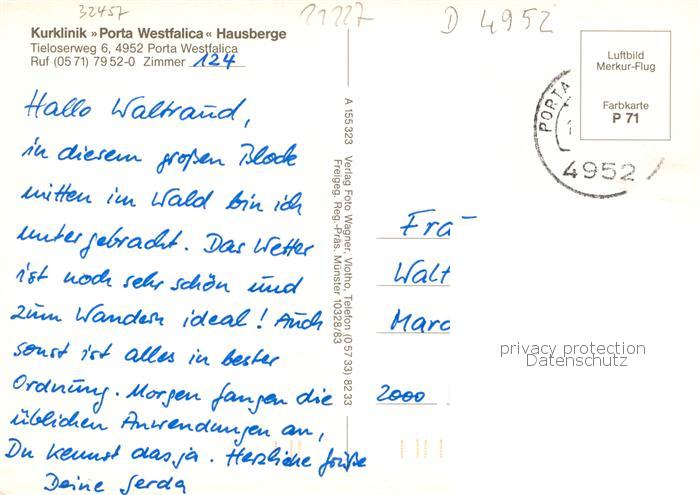 32457
D 4952
Kurklinik »Porta Westfalica« Hausberge
Tieloserweg 6, 4952 Porta Westfalica
Ruf (05 71) 79 52-0 Zimmer 124
Hallo Waltraud,
in diesem großen Block
mitten im Wald bin ich
untergebracht. Das Wetter
ist noch sehr schön und
zum Wandern ideal! Auch
sonst ist alles in bester
Ordnung. Morgen fangen die
üblichen Anwendungen an,
Du kennst das ja. Herzliche Grüße
Deine Gerda
A 155 323 Verlag Foto Wagner, Vlotho, Telefon (0 57 33) 82 33
Freigeg. Reg.-Präs. Münster 10328/83
Luftbild
Merkur-Flug
Farbkarte
P 71
PORTA
4952
Fra
Walt
Marc
2000
privacy protection
Datenschutz